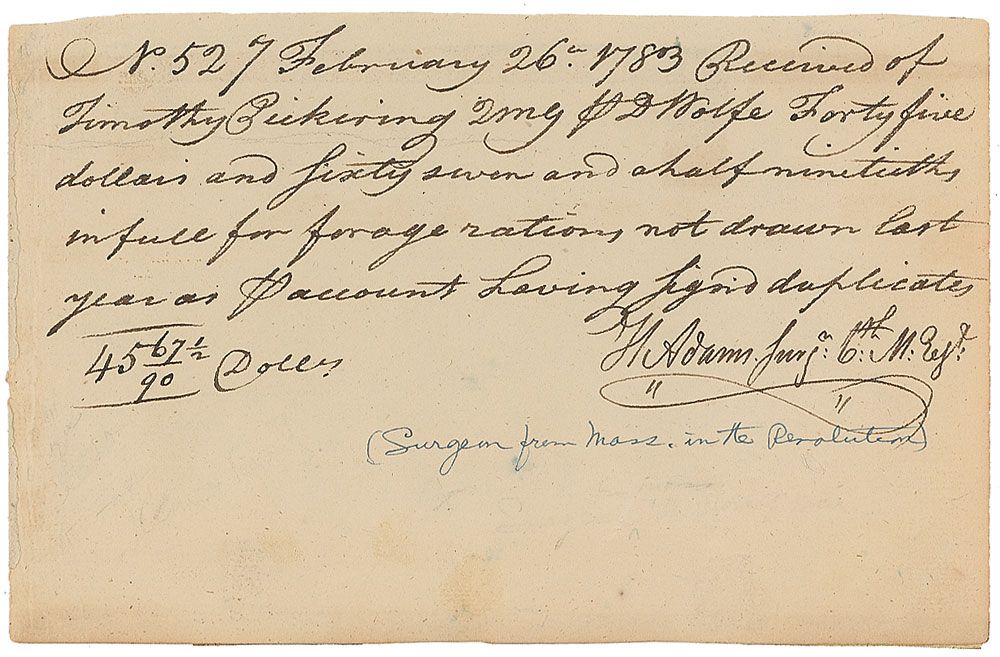 No 527 February 26th 1783 Received of
Timothy Pickering QMG ⅌ D Wolfe Forty five
dollars and sixty seven and a half ninetieths
in full for forage rations not drawn last
year as ⅌ account having sign'd duplicates
45 67½/90 Dolls
H Adams Surgn 6th M. Regt
(Surgeon from Mass. in the Revolution)